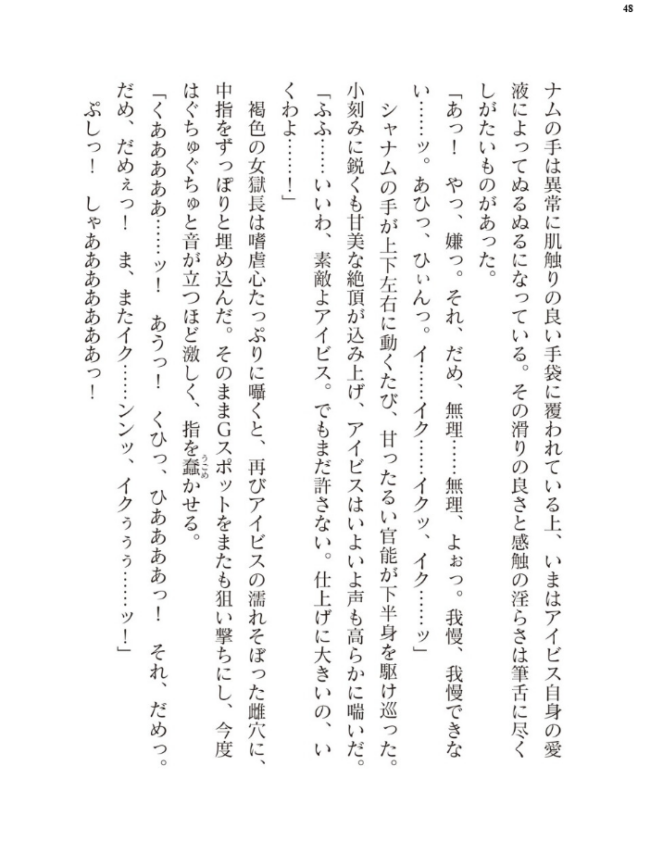 48
ナムの手は異常に肌触りの良い手袋に覆われている上、いまはアイビス自身の愛
液によってぬるぬるになっている。その滑りの良さと感触の淫らさは筆舌に尽く
しがたいものがあった。
「あっ！　やっ、嫌っ。それ、だめ、無理……無理、よぉっ。我慢、我慢できな
い……ッ。あひっ、ひぃんっ。イ……イク……イクッ、イク……ッ」
　シャナムの手が上下左右に動くたび、甘ったるい官能が下半身を駆け巡った。
小刻みに鋭くも甘美な絶頂が込み上げ、アイビスはいよいよ声も高らかに喘いだ。
「ふふ……いいわ、素敵よアイビス。でもまだ許さない。仕上げに大きいの、い
くわよ……！」
　褐色の女獄長は嗜虐心たっぷりに囁くと、再びアイビスの濡れそぼった雌穴に、
中指をずっぽりと埋め込んだ。そのままGスポットをまたも狙い撃ちにし、今度
はぐちゅぐちゅと音が立つほど激しく、指を蠢かせる。
うごめ
「くあああああ……ッ！　あうっ！　くひっ、ひああああっ！　それ、だめっ。
だめ、だめぇっ！　ま、またイク……ンンッ、イクぅぅぅ……ッ！」
　ぷしっ！　しゃああああああああっ！